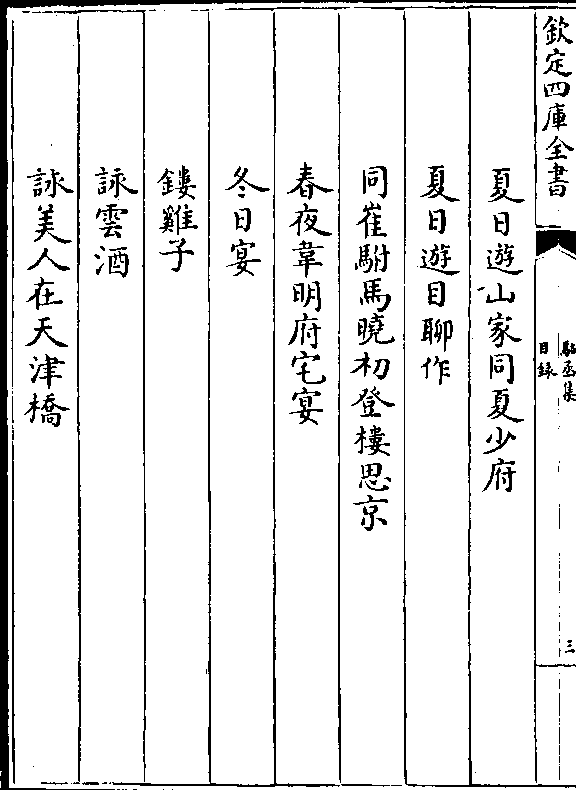 欽定四庫全書
駱丞集
目錄
三
夏日遊山家同夏少府
夏日遊目聊作
同崔駙馬曉初登樓思京
春夜韋明府宅宴
冬日宴
鏤雞子
詠雲酒
詠美人在天津橋